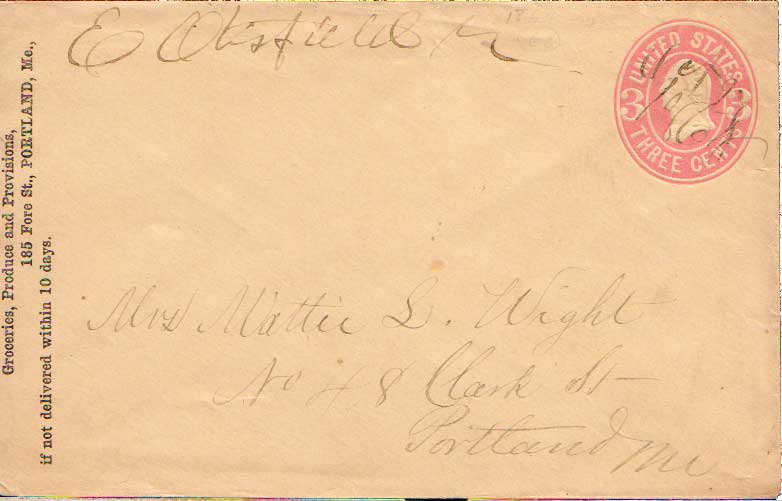 E Otisfield Me
UNITED STATES
3 3
THREE CENTS
Groceries, Produce and Provisions,
185 Fore St., PORTLAND, Me.,
if not delivered within 10 days.
Mrs Mattie L. Wight
No 48 Clark St
Portland Me